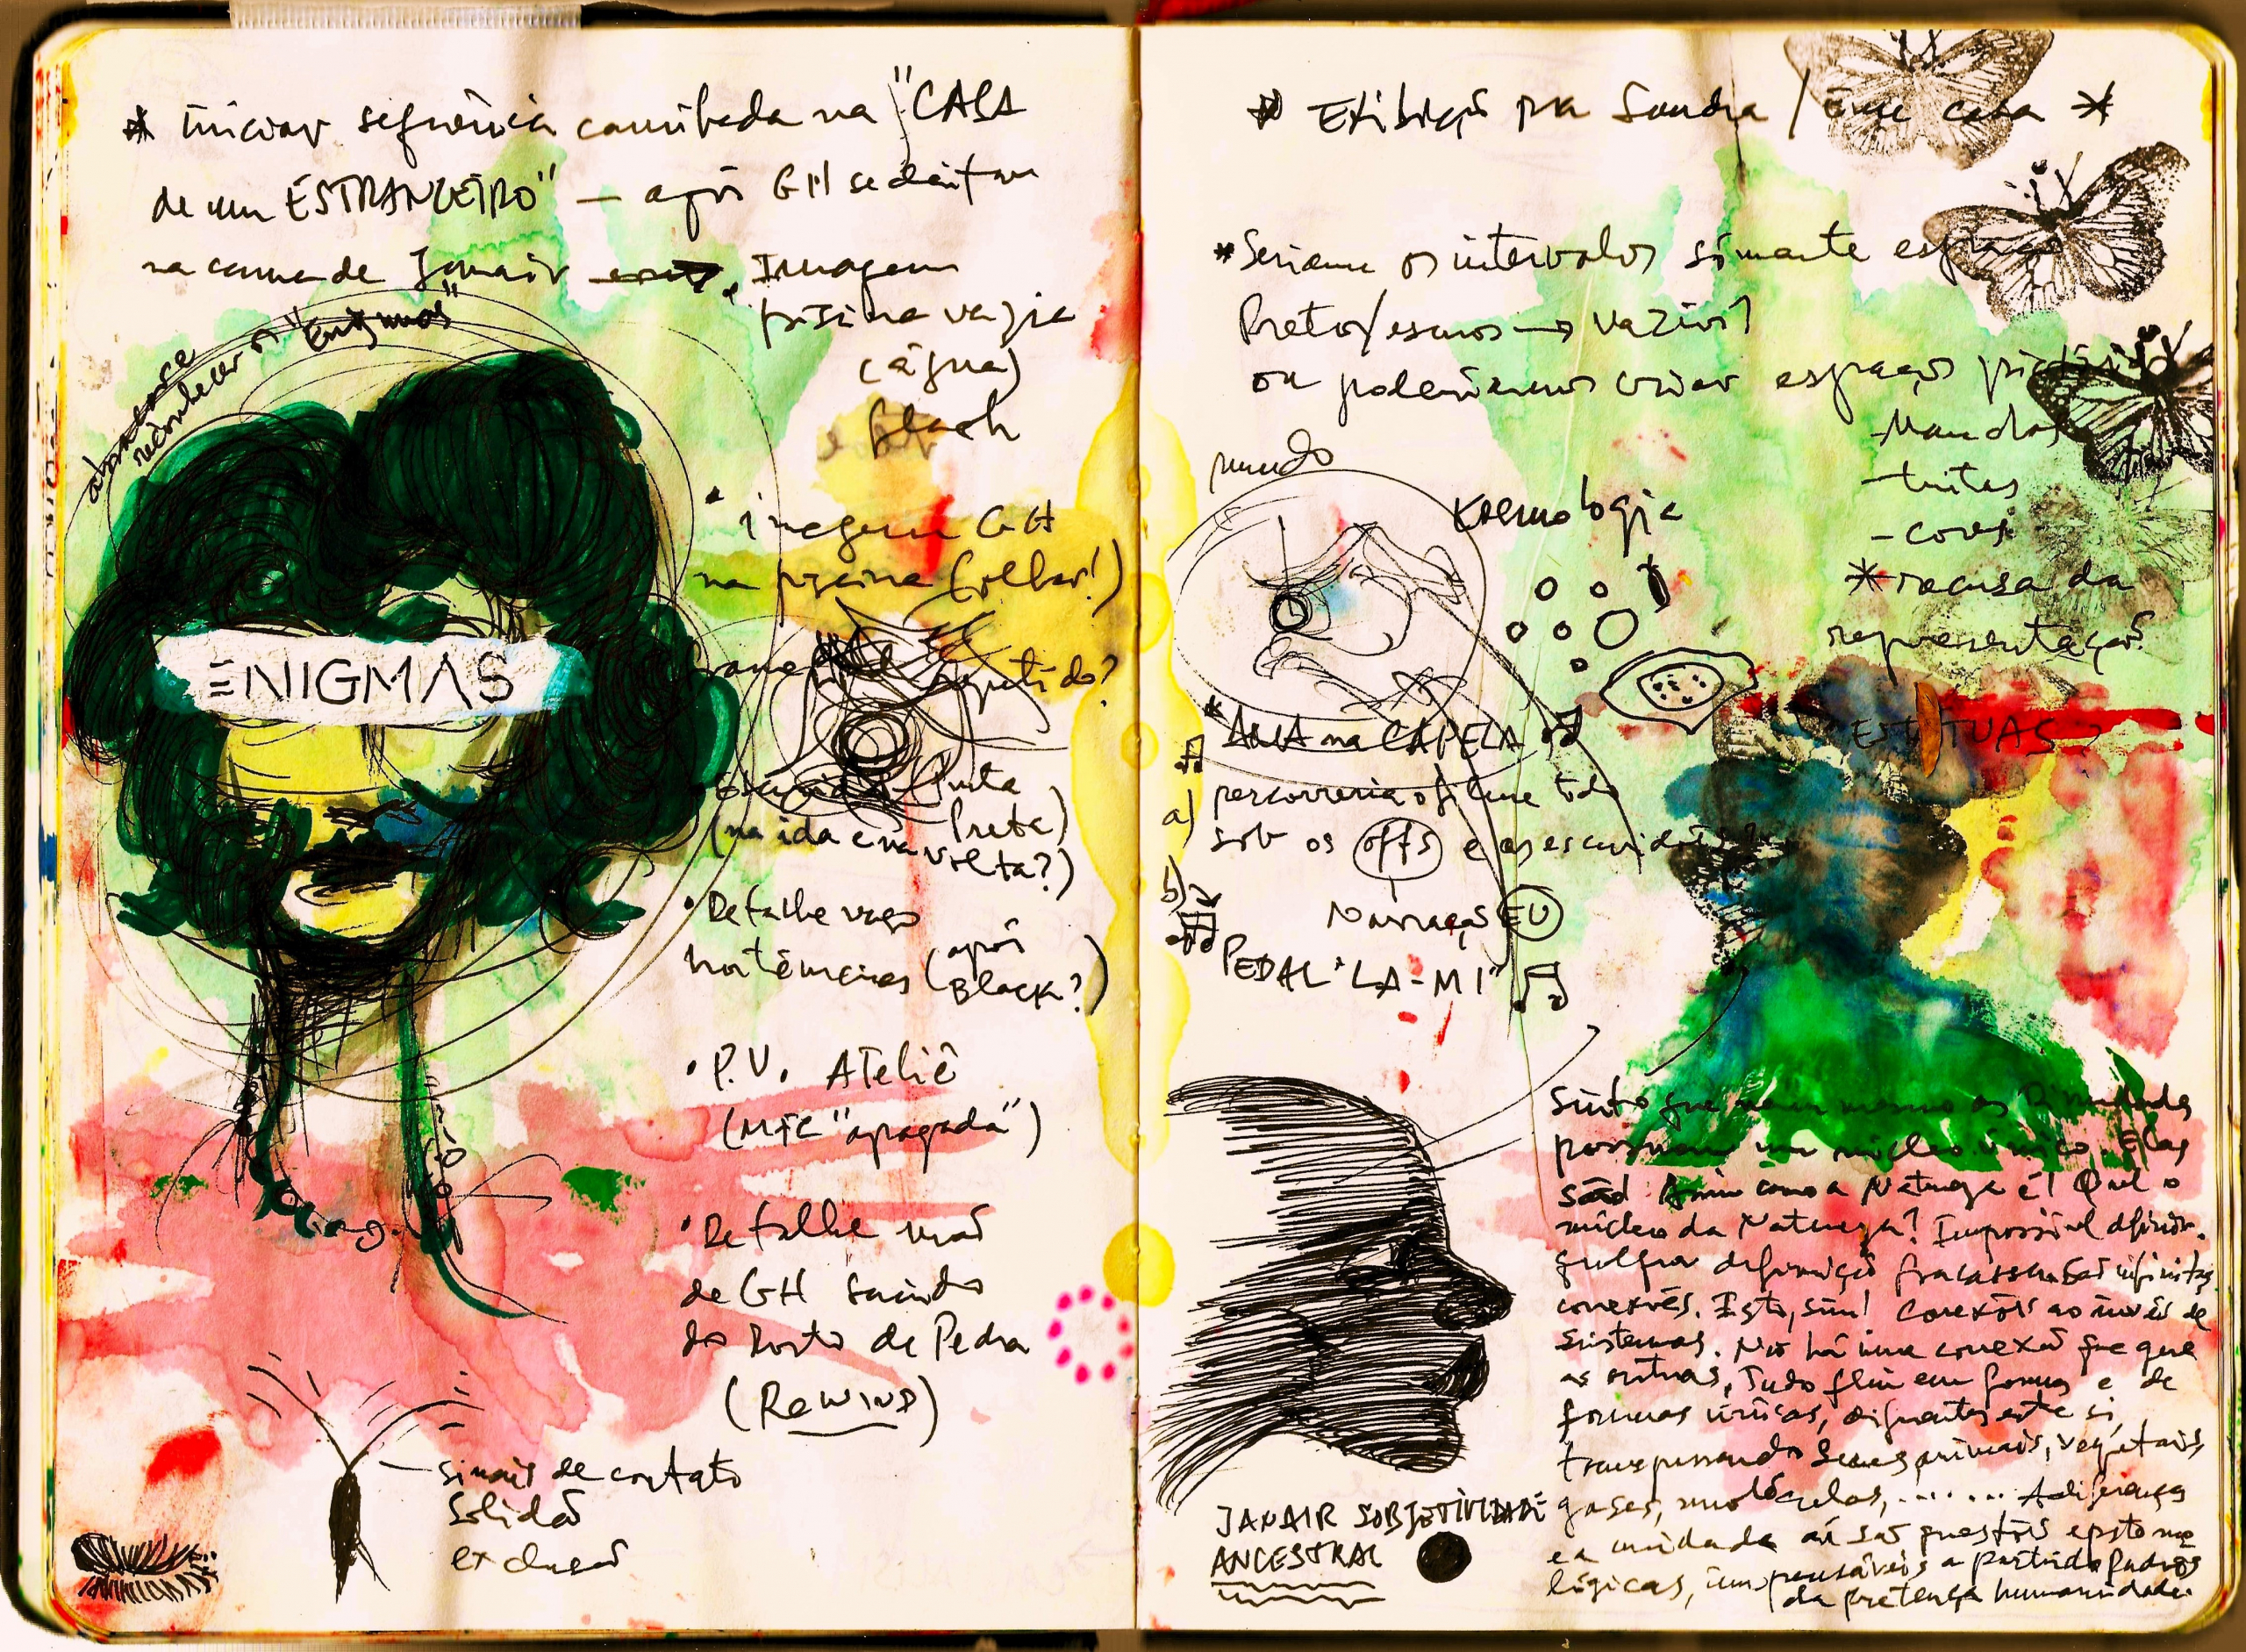 * iniciar sequência carimbada na "CASA
de um ESTRANGEIRO" — após GH se deitar
na cama de Janair. Imagem
piscina vazia
(água)
black
abre
reconhecer os "Enigmas"
ENIGMAS
* imagem GH
na piscina (olhar!)
repetido?
tinta
Preta)
(na ida e na volta?)
• Detalhe vaso
hortências (após
Black?)
• P.V. Ateliê
(MIC "apagada")
• Detalhe mão
de GH saindo
do Rosto de Pedra
(REWIND)
sinais de contato
Solidão
exclusão
* Exibição pra Sandra / casa *
* Seriam os intervalos somente espaços
Pretos/escuros → vazios?
ou poderíamos criar espaços pictóricos
- Manchas
- tintas
- cores
* recusa da
representação?
mundo
Kosmologia
* ALMA na CAPELA
a) percorreria o filme todo
sob os offs e as escuridões
Narração EU
b)
PEDAL "LA-MI"
ESTÁTUAS
Sinto que nem mesmo as
possuem um núcleo único. Elas
são! Assim como a Natureza é! Qual o
núcleo da Natureza? Impossível definir.
qualquer definição fracassa. São infinitas
conexões. Isto, sim! Conexões ao invés de
sistemas. Não há uma conexão que gere
as outras, Tudo flui em formas e de
formas únicas, diferentes entre si,
transpassando seres animais, vegetais,
gases, moléculas, ........ A diferença
e a unidade aí são questões epistemo
lógicas, impensáveis a partir do padrões
da pretensa humanidade.
JANAIR SUBJETIVIDADE
ANCESTRAL